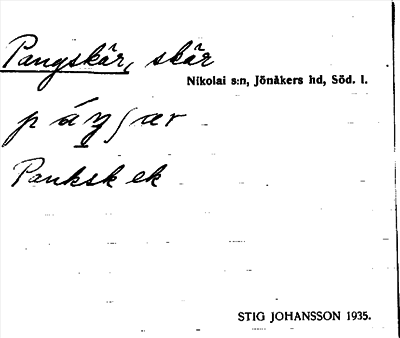 Pangskär, skär
Nikolai s:n, Jönåkers hd, Söd. l.
Panksk ek
STIG JOHANSSON 1935.